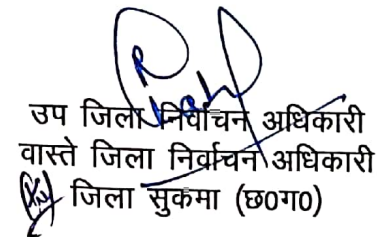 उप जिला निर्वाचन अधिकारी
वास्ते जिला निर्वाचन अधिकारी
जिला सुकमा (छ0ग0)